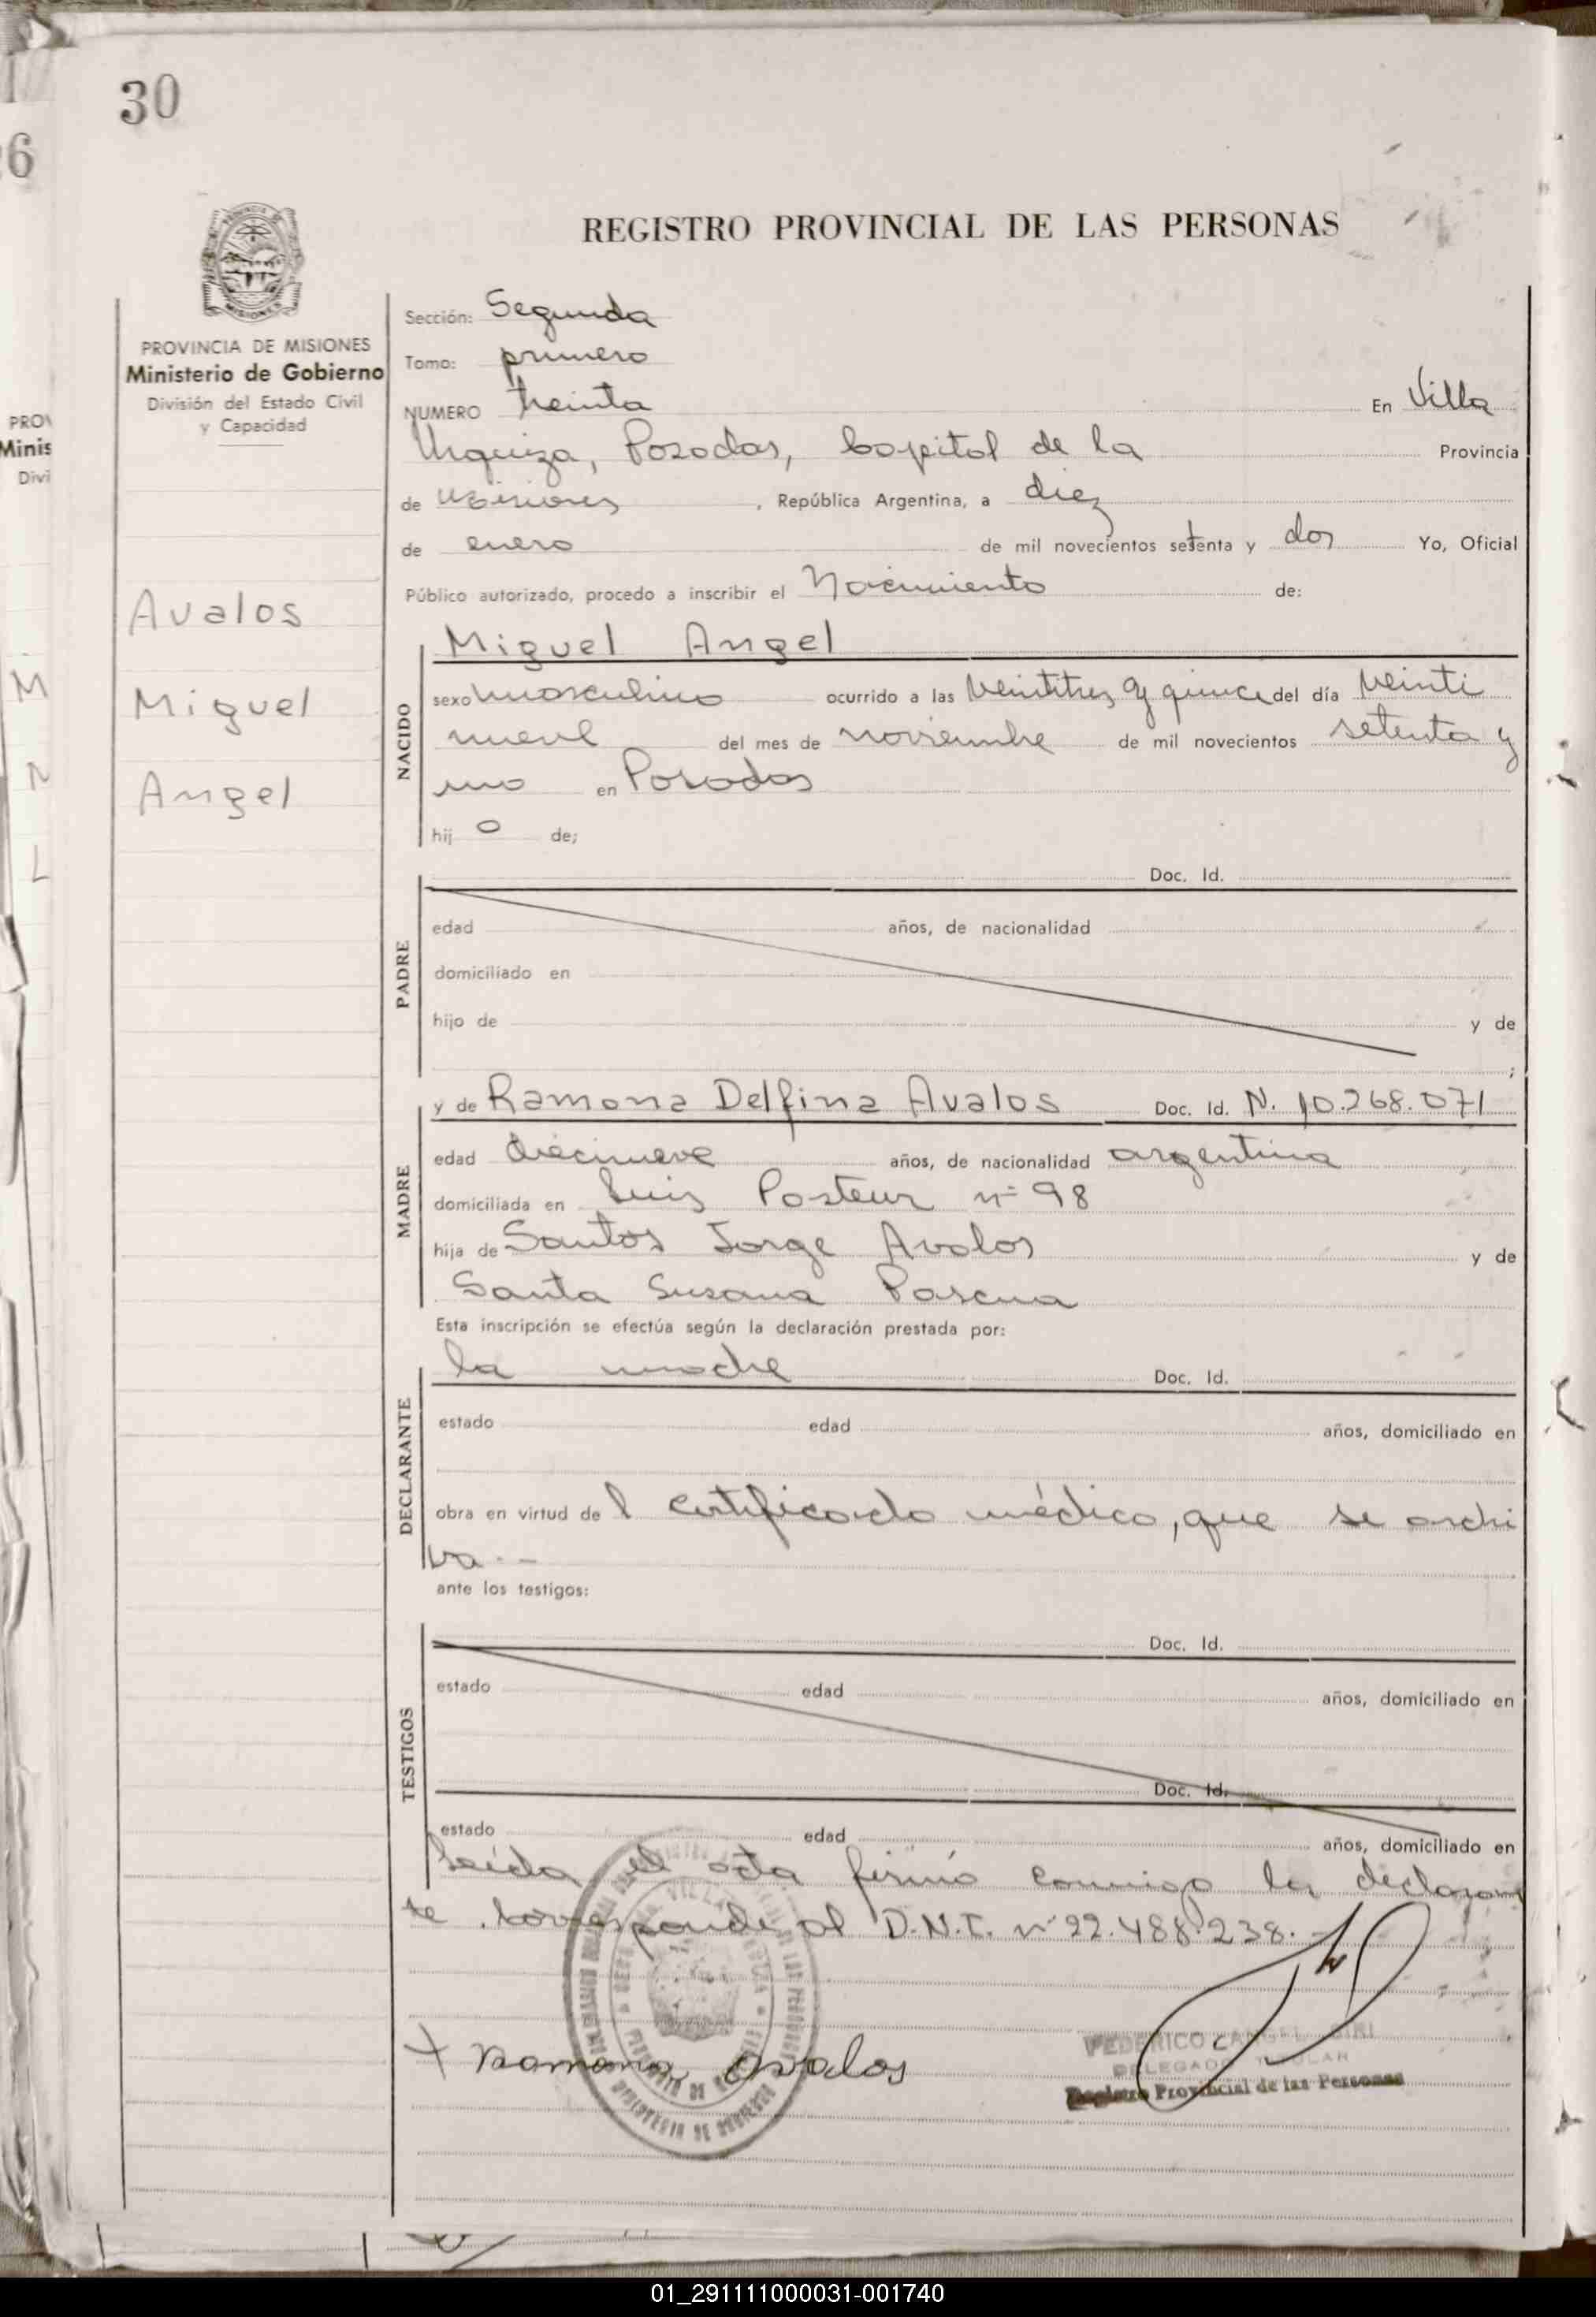 30
6
REGISTRO PROVINCIAL DE LAS PERSONAS
PROVINCIA DE MISIONES
Ministerio de Gobierno
División del Estado Civil
y Capacidad
PROV
Minis
Divi
Avalos
Miguel
Angel
M
N
L
Sección: Segunda
Tomo: primero
NUMERO treinta En Villa
Urquiza, Posadas, Capital de la Provincia
de Misiones, República Argentina, a diez
de enero de mil novecientos setenta y dos Yo, Oficial
Público autorizado, procedo a inscribir el Nacimiento de:
NACIDO
Miguel Angel
sexo masculino ocurrido a las veintitres y quince del día veinti
nueve del mes de noviembre de mil novecientos setenta y
uno en Posadas
hij o de;
PADRE
Doc. Id.
edad años, de nacionalidad
domiciliado en
hijo de y de
;
MADRE
y de Ramona Delfina Avalos Doc. Id. N. 10.268.071
edad diecinueve años, de nacionalidad argentina
domiciliada en Luis Pasteur nº 98
hija de Santos Jorge Avalos y de
Santa Susana Pascua
Esta inscripción se efectúa según la declaración prestada por:
DECLARANTE
la madre Doc. Id.
estado edad años, domiciliado en
obra en virtud de l certificado médico, que se archi
va.-
ante los testigos:
TESTIGOS
Doc. Id.
estado edad años, domiciliado en
Doc. Id.
estado edad años, domiciliado en
Leída el acta firmó conmigo la declaran
te. Corresponde al D.N.I. nº 22.488.238.-
Ramona Avalos
FEDERICO
DELEGADO TITULAR
Registro Provincial de las Personas
01_291111000031-001740